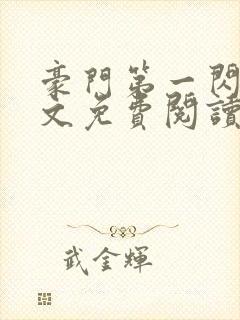 豪門第一閃
文免費閱讀
武金輝